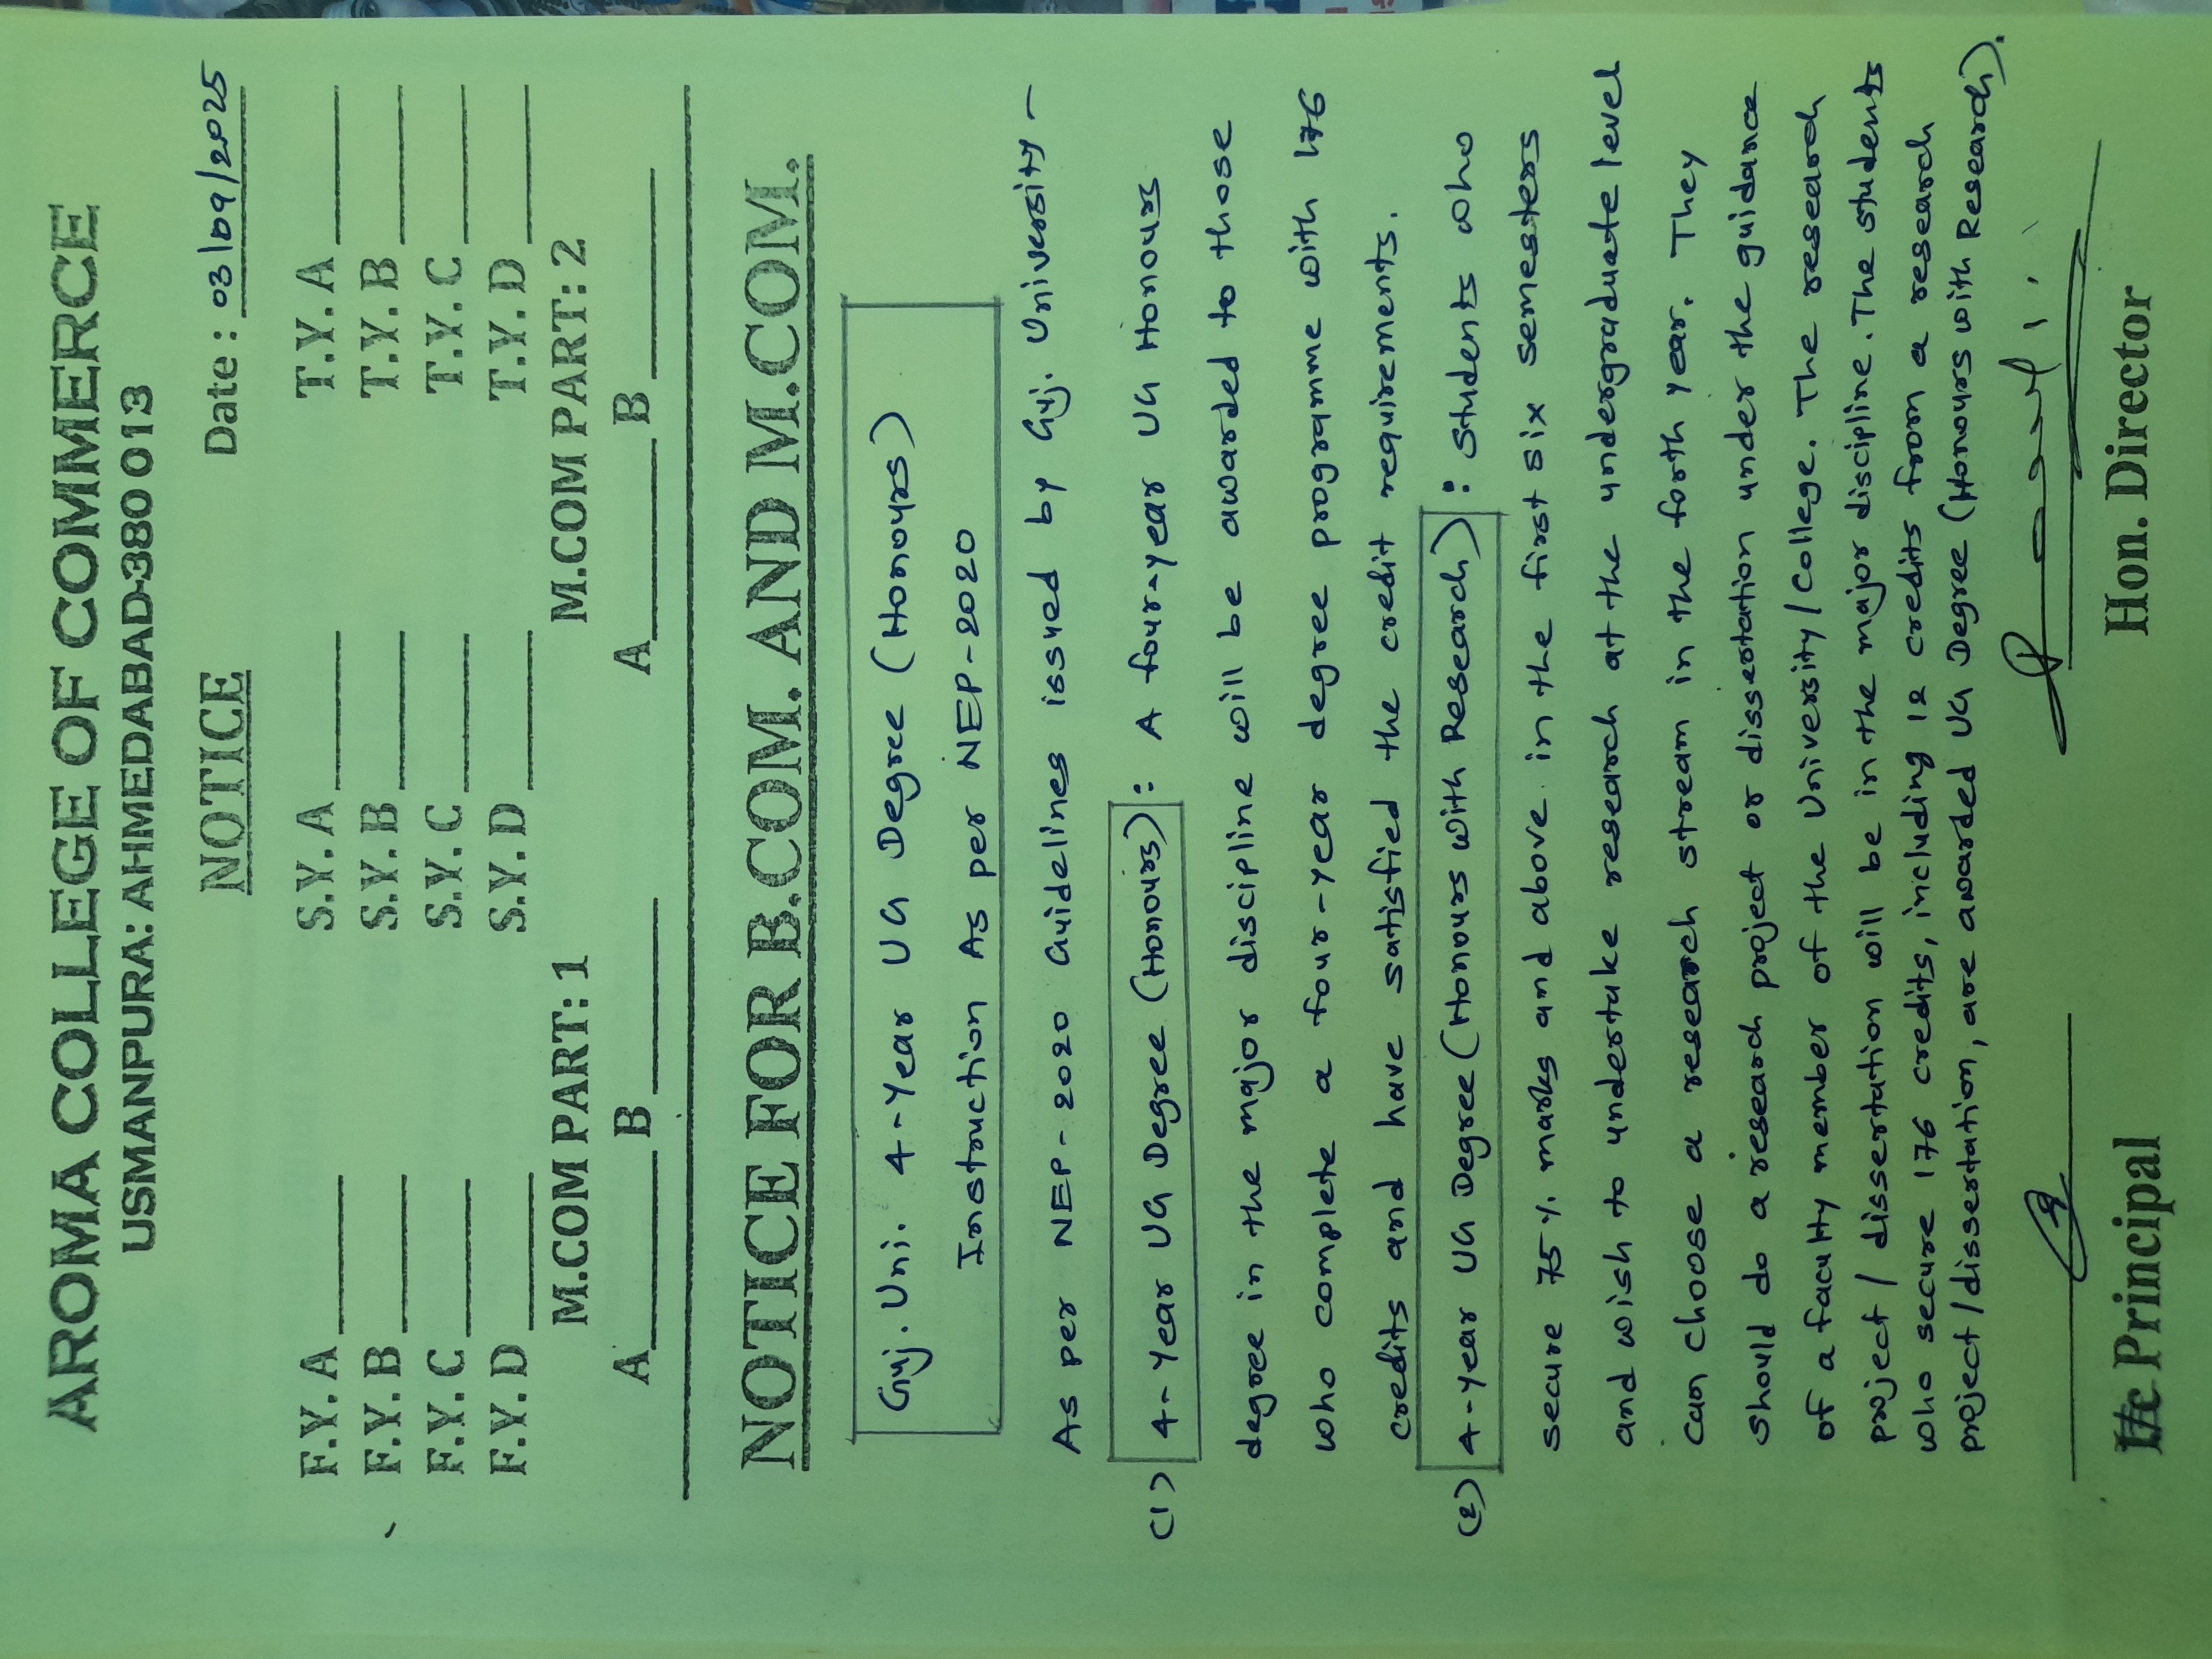 AROMA COLLEGE OF COMMERCE
USMANPURA: AHMEDABAD-380 013
NOTICE Date: 03/09/2025
F.Y. A S.Y. A T.Y. A
F.Y. B S.Y. B T.Y. B
F.Y. C S.Y. C T.Y. C
F.Y. D S.Y. D T.Y. D
M.COM PART: 1 M.COM PART: 2
A B A B
NOTICE FOR B.COM. AND M.COM.
Guj. Uni. 4-Year UG Degree (Honours)
Instruction As per NEP-2020
As per NEP-2020 Guidelines issued by Guj. University -
(1) 4-Year UG Degree (Honours): A four-year UG Honours
degree in the major discipline will be awarded to those
who complete a four-year degree programme with 176
credits and have satisfied the credit requirements.
(2) 4-year UG Degree (Honours with Research): Students who
secure 75% marks and above in the first six semesters
and wish to undertake research at the undergraduate level
can choose a research stream in the forth year. They
should do a research project or dissertation under the guidance
of a faculty member of the University/College. The research
project/dissertation will be in the major discipline. The students
who secure 176 credits, including 12 credits from a research
project/dissertation, are awarded UG Degree (Honours with Research).
Principal Hon. Director